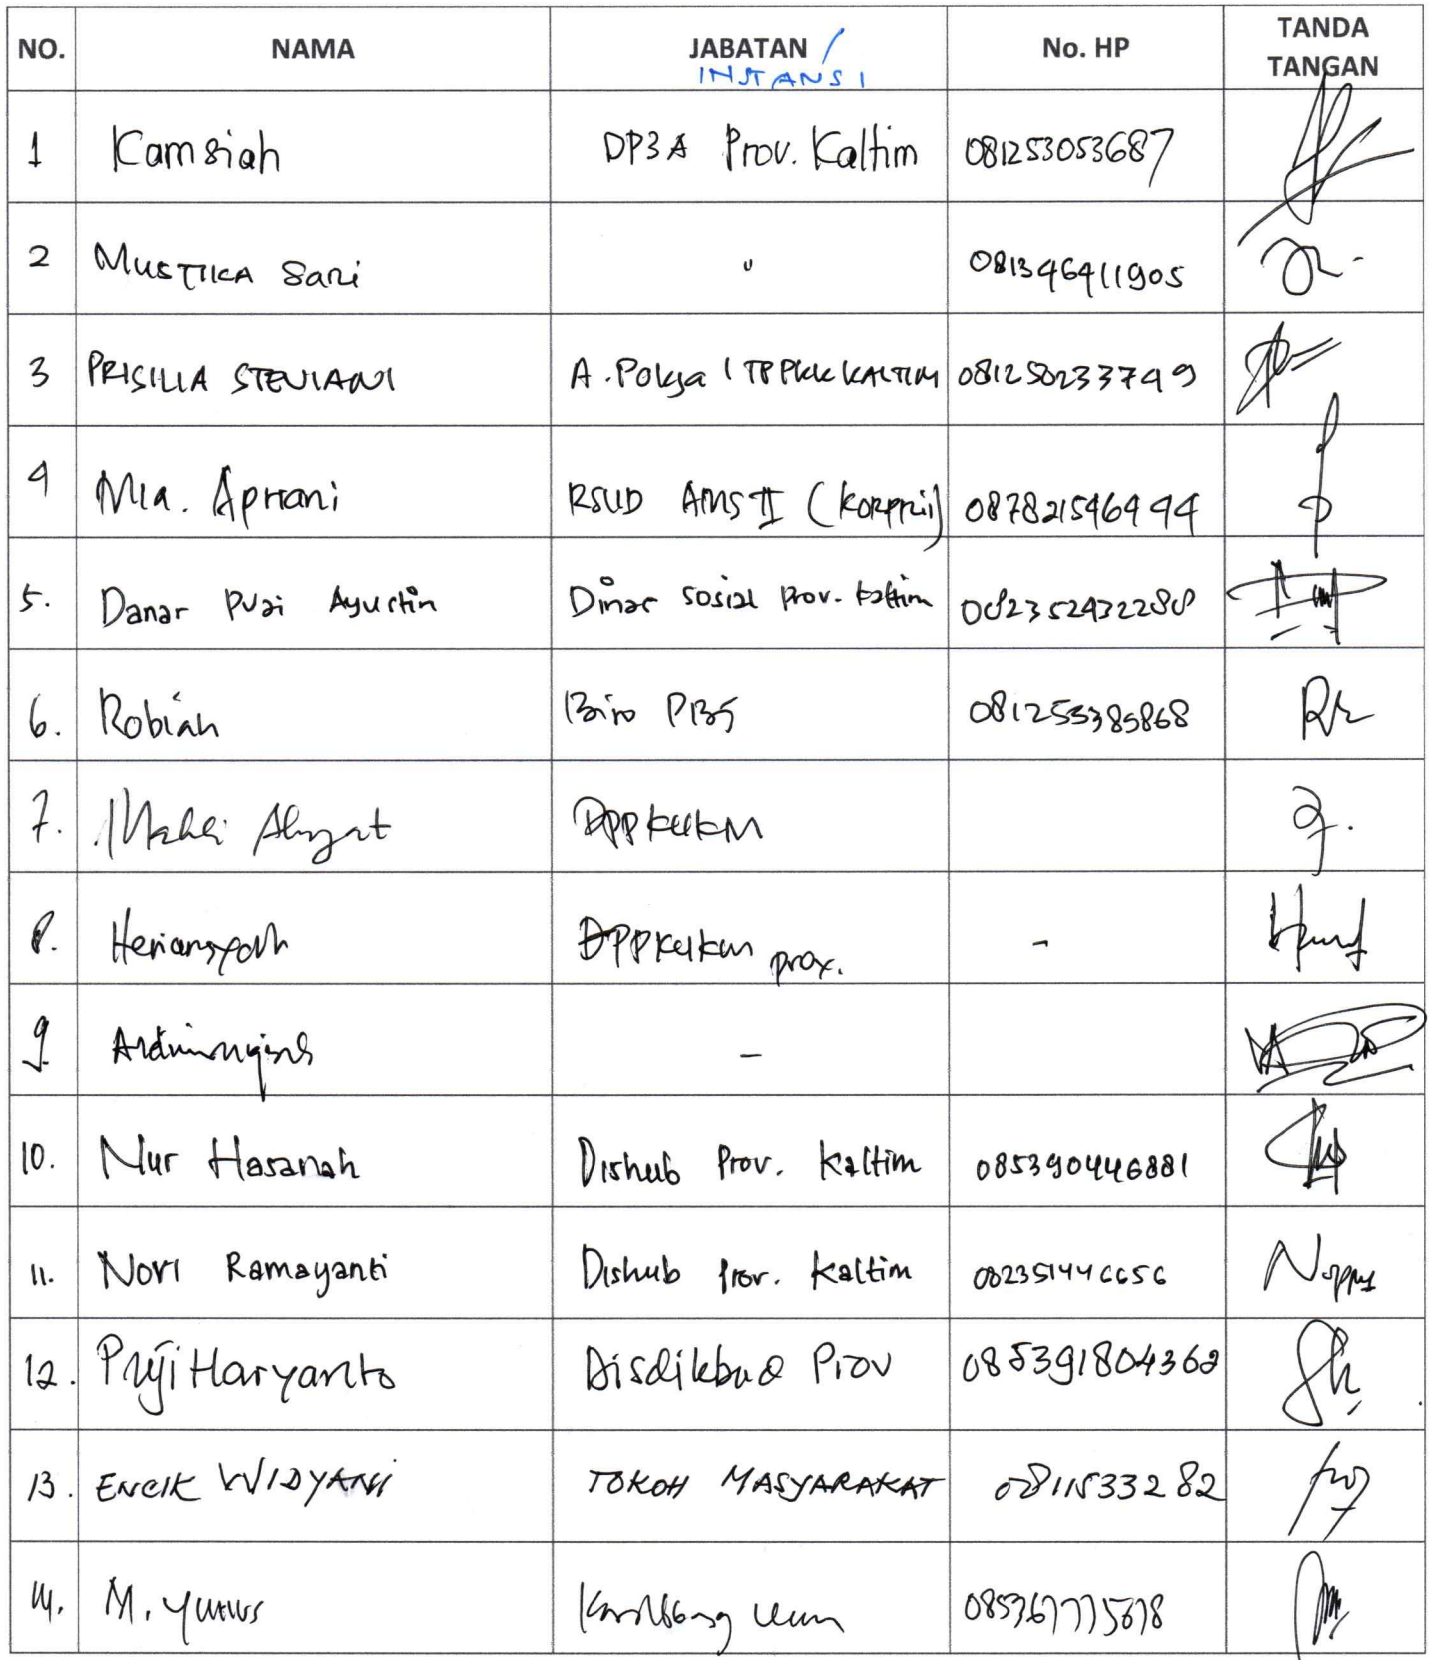 NO. NAMA JABATAN / No. HP TANDA TANGAN
INSTANSI
1 Kamsiah DP3A Prov. Kaltim 081253053687
2 MUSTIKA Sari " 081346411905
3 PRISILIA STEVIANI A. Pokja I TP PKK KALTIM 081250233749
4 Mia. Apriani RSUD AMS II (Korpri) 087821546944
5. Danar Puji Ayustin Dinas Sosial Prov. Kaltim 082352432288
6. Robiah Biro PBJ 081255385868
7. Ahyat DPPKUKM
8. Heriansyah DPPKUKM prov. -
9 -
10. Nur Hasanah Dishub Prov. Kaltim 085390446881
11. Novi Ramayanti Dishub Prov. Kaltim 082351446656
12. Puji Haryanto Disdikbud Prov 085391804362
13. ENCIK WIDYANI TOKOH MASYARAKAT 0811533282
14. M. Yunus